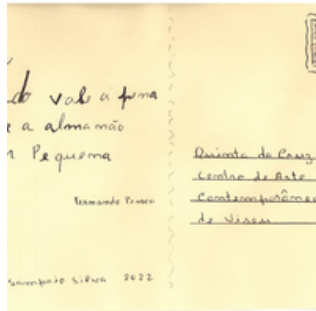 do vale a pena
e a alma não
Pequena
Fernando Pessoa
Sampaio Silva 2022
Quinta da Cruz
Centro de Arte
Contemporânea
de Viseu